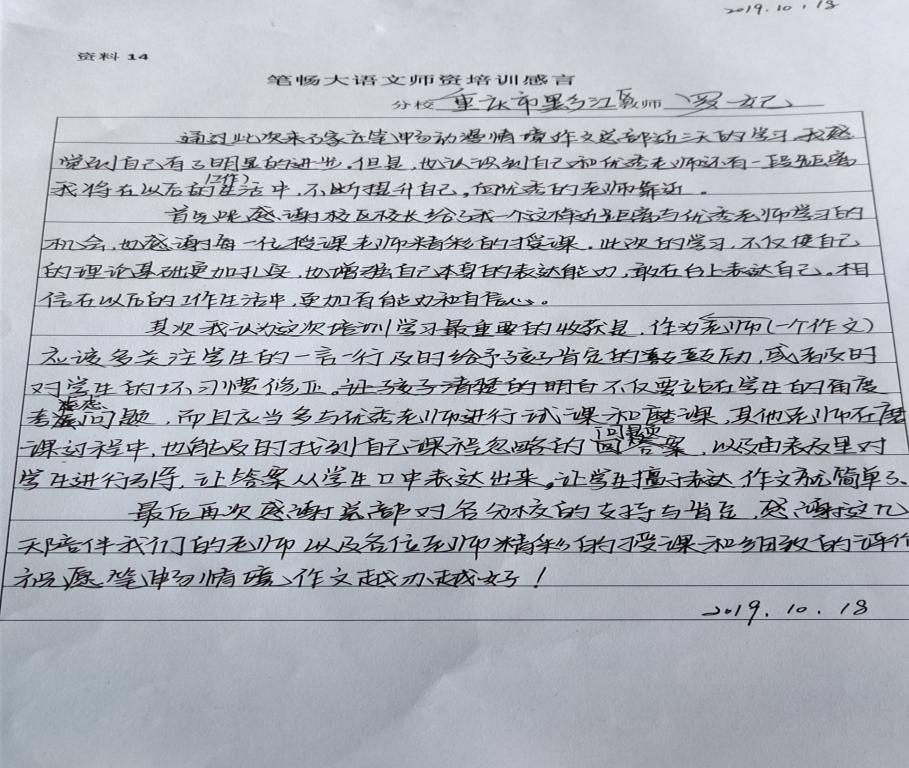 2019.10.18
资料 14
笔畅大语文师资培训感言
分校 重庆市黔江区 教师 罗妃
通过此次来石家庄笔畅动漫情境作文总部近三天的学习,我感
觉到自己有了明显的进步,但是,也认识到自己和优秀老师还有一段距离
我将在以后的(工作)生活中,不断提升自己,向优秀的老师靠近。
首先感谢校区校长给了我一个这样近距离与优秀老师学习的
机会,也感谢每一位授课老师精彩的授课。此次的学习,不仅使自己
的理论基础更加扎实,也增强自己本身的表达能力,敢在台上表达自己。相
信在以后的工作生活中,更加有能力和自信心。
其次我认为这次培训学习最重要的收获是,作为老师(一个作文)
应该多关注学生的一言一行及时给予孩子肯定的鼓励,或者及时
对学生的坏习惯修正。让孩子清楚的明白不仅要站在学生的角度
考虑问题,而且应当多与优秀老师进行试课和磨课,其他老师在磨
课过程中,也能及时找到自己课程忽略的问题答案,以及由表及里对
学生进行引导,让答案从学生口中表达出来。让学生擅于表达,作文就简单了。
最后再次感谢总部对各分校的支持与肯定,感谢这几
天陪伴我们的老师以及各位老师精彩的授课和细致的评价
祝愿笔畅情境作文越办越好!
2019.10.18